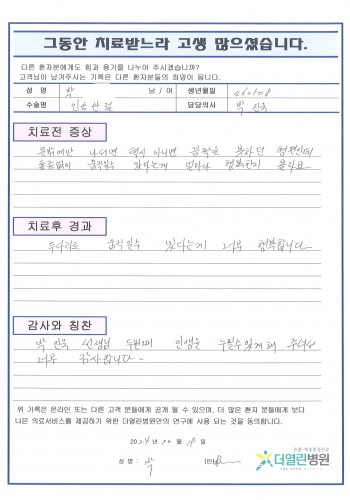 그동안 치료받느라 고생 많으셨습니다.
다른 환자분에게도 힘과 용기를 나누어 주시겠습니까?
고객님이 남겨주시는 기록은 다른 환자분들의 희망이 됩니다.
성 명 박 남 / 여 생년월일 460108
수술명 담당의사 박 진욱
치료전 증상
문밖에만 나서면 택시 아니면 꼼짝을 못하던 형편인데
통증없이 움직일수 있다는게 얼마나 행복한지 몰라요
치료후 경과
두다리로 움직일수 있다는게 너무 행복합니다
감사와 칭찬
박 진욱 선생님 두번째 인생을 누릴수있게 해 주셔서
너무 감사합니다~
위 기록은 온라인 또는 다른 고객 분들에게 공개 될 수 있으며, 더 많은 환자 분들에게 보다
나은 의료서비스를 제공하기 위한 더열린병원만의 연구에 사용 되는 것을 동의합니다.
2024년 10월 18일
성 명 : 박 (인)
더열린병원